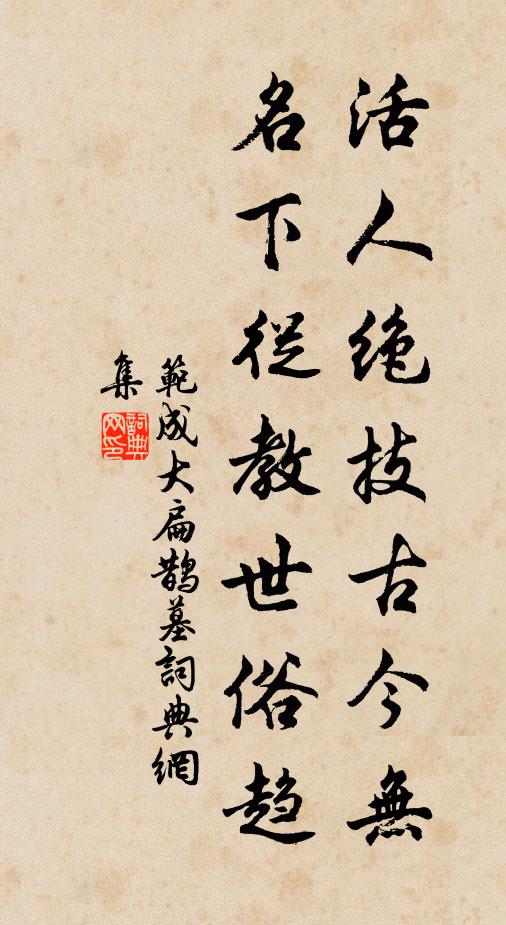 活人绝技古今無
名下從教世俗趋
範成大扁鵲墓詞典網
集
詞典网印